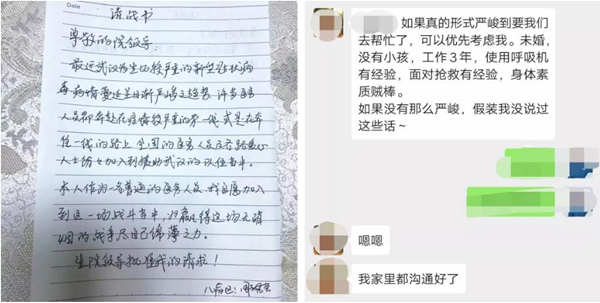 Date
请战书
尊敬的院领导:
最近武汉发生比较严重的新型冠状病
毒,病情蔓延呈日渐严峻之趋势,许多医务
人员都奔赴在疫情较严重的第一线或是在奔
往一线的路上,全国的医务人员及各路爱心
人士纷纷加入到援助武汉的队伍当中。
本人作为一名普通的医务人员,我自愿加入
到这一场战斗当中,为赢得这场无硝
烟的战争尽自己绵薄之力。
望院领导批准我的请求!
八病区:
如果真的形式严峻到要我们
去帮忙了,可以优先考虑我。未婚,
没有小孩,工作3年,使用呼吸机
有经验,面对抢救有经验,身体素
质贼棒。
如果没有那么严峻,假装我没说过
这些话~
嗯嗯
我家里都沟通好了